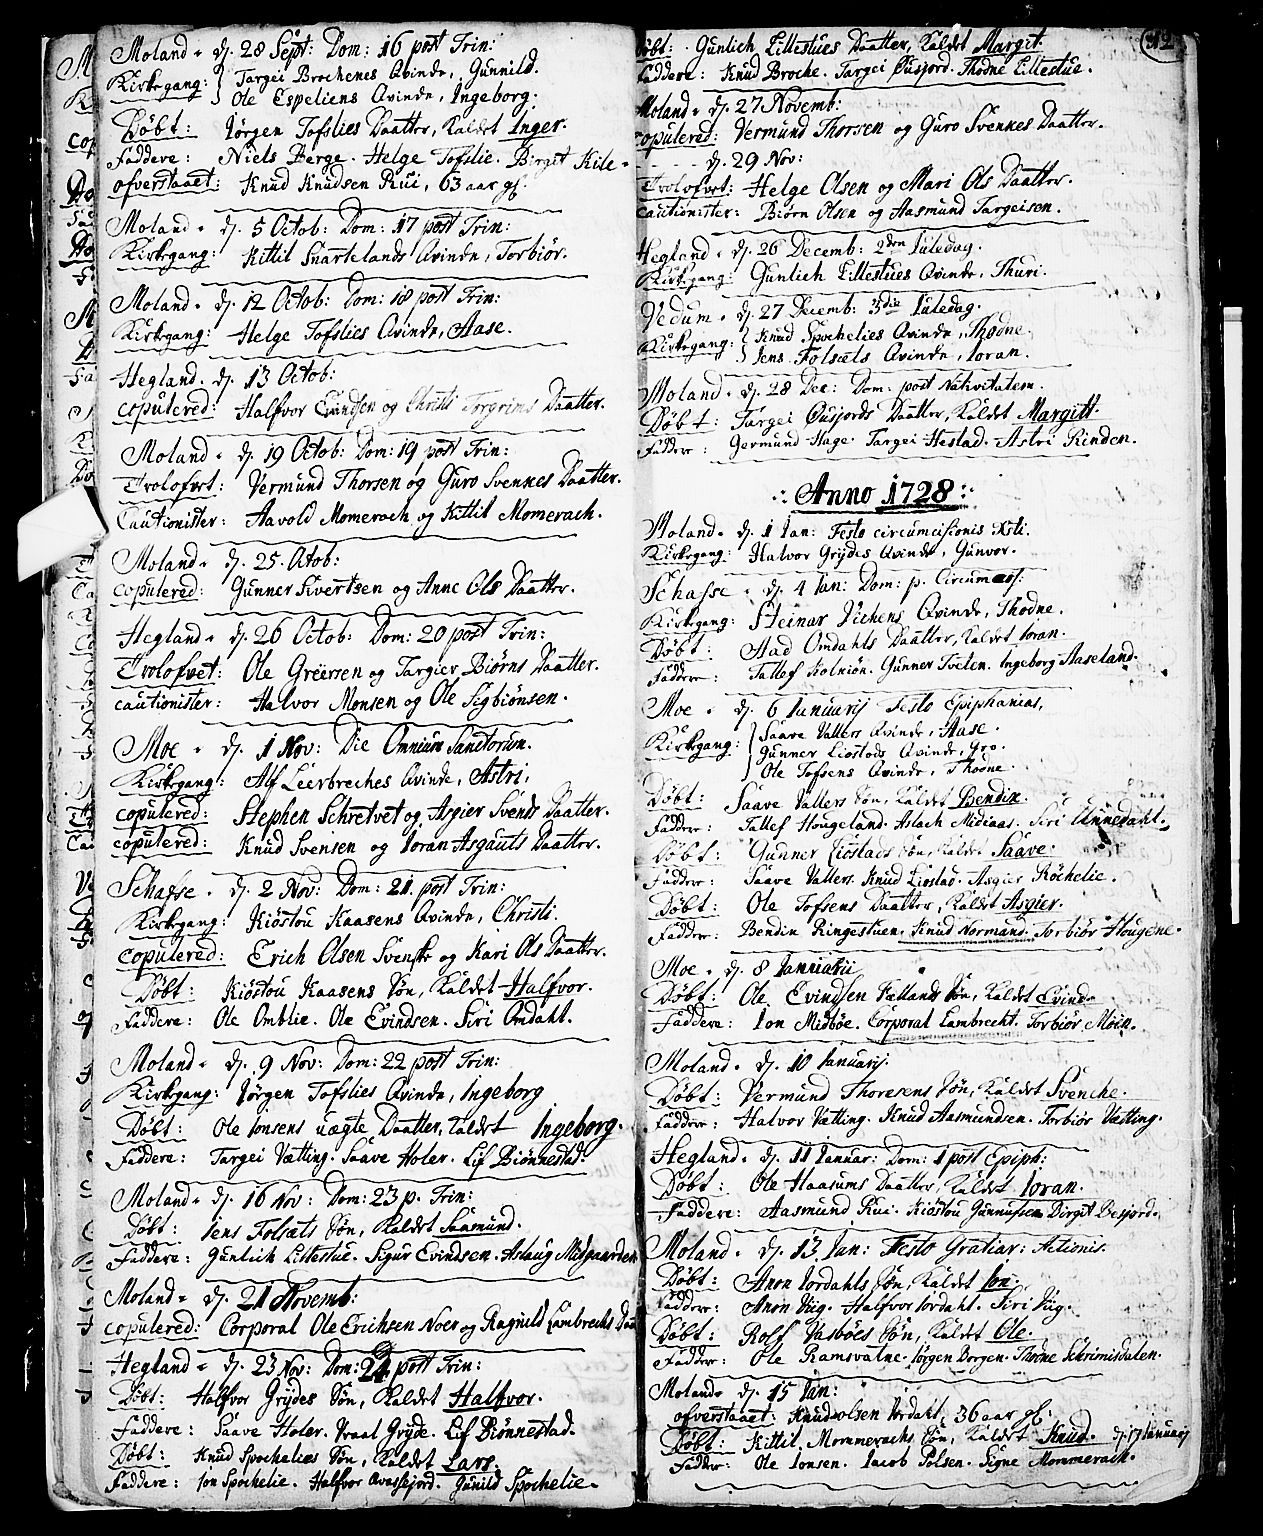 Moland. d. 28 Sept: Dom: 16 post Trin:
Kirkegang: Targei Brochenes Qvinde, Gunnild.
Ole Espeliens Qvinde, Ingeborg.
Døbt: Jørgen Tofslies Daatter, kaldet Inger.
Faddere: Niels Berge. Helge Tofslie. Birgit Kile.
ofverstaaet: Knud Knudsen Rui, 63 aar gl.
Moland. d. 5 Octob: Dom: 17 post Trin:
Kirkegang: Kittil Snartelands Qvinde, Torbiør.
Moland. d. 12 Octob: Dom: 18 post Trin:
Kirkegang: Helge Tofslies Qvinde, Aase.
Hegland. d. 13 Octob:
copulered: Halfvor Evindsen og Christi Torgrims Daatter.
Moland. d. 19 Octob: Dom: 19 post Trin:
Trolofvet: Vermund Thorsen og Guro Svenkes Daatter.
Cautionister: Aavold Momerach og Kittil Momerach.
Moland. d. 25. Octob:
copulered: Gunner Sivertsen og Anne Ols Daatter.
Hegland. d. 26 Octob: Dom: 20 post Trin:
Trolofvet: Ole Greersen og Targier Biørns Daatter.
cautionister: Halvor Monsen og Ole Sigbiønsen.
Moe. d. 1 Nov: Die Omnium Sanctorum.
Kirkegang: Alf Leerbreches Qvinde, Astri.
copulered: Stephen Schretvet og Asgier Svends Daatter.
copulered: Knud Svensen og Joran Asgauts Daatter.
Schafse. d. 2 Nov: Dom: 21. post Trin:
Kirkegang: Kiøstou Kaasens Qvinde, Christi.
copulered: Erich Olsen Svenske og Kari Ols Daatter.
Døbt: Kiøstou Kaasens Søn, kaldet Halfvor.
Faddere: Ole Omblie. Ole Evindsen. Siri Omdahl.
Moland. d. 9 Nov: Dom: 22 post Trin:
Kirkegang: Jørgen Tofslies Qvinde, Ingeborg
Døbt: Ole Jonsens uægte Daatter, kaldet Ingeborg.
Faddere: Targei Vætting. Saave Holer. Lif Biønnestad.
Moland. d. 16 Nov: Dom: 23 p. Trin:
Døbt: Jens Folsæts Søn, kaldet Saamund.
Faddere: Gunlich Littestue. Sigur Evindsen. Aslaug Midgaarden
Moland. d. 21 Novemb:
copulered: Corporal Ole Erichsen Noer og Ragnild Lambrechts Daa
Hegland. d. 23 Nov: Dom: 24 post Trin:
Døbt: Halfvor Grydes Søn, kaldet Halfvor.
Faddere: Saave Holer. Vraal Gryde. Lif Biønnestad.
Døbt: Knud Spochelies Søn, kaldet Lars.
Faddere: Jon Spochelie. Halfvor Qvassejord. Gunild Spochelie.
12
Døbt: Gunlich Littestues Daatter, kaldet Margit.
Faddere: Knud Broche. Targei Øusjord. Thodne Littestue.
Moland. d. 27 Novemb:
copulered: Vermund Thorsen og Guro Svenkes Daatter.
d. 29 Nov:
Trolofvet: Helge Olsen og Mari Ols Daatter.
cautionister: Biørn Olsen og Aasmund Targeisen.
Hegland. d. 26 Decemb: 2den Juledag.
Kirkegang: Gunlich Littestues Qvinde, Thuri.
Vedum. d. 27 Decemb: 3die Juledag.
Kirkegang: Knud Spochelies Qvinde, Thodne.
Jens Folsæts Qvinde, Joran.
Moland. d. 28 Dec: Dom: post Nativitatem.
Døbt: Targei Øusjords Daatter, kaldet Margitt.
Faddere: Germund Hage. Targei Hestad. Astri Rinden.
Anno 1728
Moland. d. 1 Jan: Festo circumcisionis Xsti.
Kirkegang: Halvor Grydes Qvinde, Gunvor.
Schafse. d. 4 Jan: Dom: p. Circumcis:
Kirkegang: Steinar Vichens Qvinde, Thodne.
Døbt: Aad Omdahls Daatter, kaldet Joran.
Faddere: Tallef Kolniøn. Gunner Tveten. Ingeborg Aaseland.
Moe. d. 6 Januarij Festo Epiphanias.
Kirkegang: Saave Vallers Qvinde, Aase.
Gunner Liostads Qvinde, Gro.
Ole Tofsens Qvinde, Thodne.
Døbt: Saave Vallers Søn, kaldet Bendix.
Faddere: Tallef Hougeland. Aslach Midiaas. Siri Unnedahl.
Døbt: Gunner Liostads Søn, kaldet Saave.
Faddere: Saave Vallers. Knud Liostad. Asgier Røchelie.
Døbt: Ole Tofsens Daatter, kaldet Asgier.
Faddere: Bendix Ringestuen. Knud Normand. Torbiør Hougene.
Moe. d. 8 Januarii
Døbt: Ole Evindsen Fætlands Søn, kaldet Evind.
Faddere: Jon Midbøe. Corporal Lambrecht. Torbiør Moen.
Moland. d. 10 Januarij.
Døbt: Vermund Thoresens Søn, kaldet Svenche.
Faddere: Halvor Vætting. Knud Aasmundsen. Torbiør Vætting.
Hegland. d. 11 Januar: Dom: 1 post Epiph:
Døbt: Ole Haasums Daatter, kaldet Joran.
Faddere: Aasmund Rui. Kiøstou Gunnufsen. Birgit Besjord.
Moland. d. 13 Jan: Festo Gratiar: Actionis.
Døbt: Anon Jordahls Søn, kaldet Jon.
Faddere: Anon Vug. Halfvor Jordahl. Siri Vug.
Døbt: Rolf Vasbøes Søn, kaldet Ole.
Faddere: Ole Ramsvatne. Jørgen Borgen. Thodne Schrimisdalen.
Moland. d. 15 Jan:
ofverstaaet: Knud Olsen Jordahl, 36 aar gl:
Døbt: Kittil Mommerachs Søn, kaldet Knud. d. 17 Januarij
Faddere: Ole Jonsen. Jacob Polsen. Signe Mommerach.